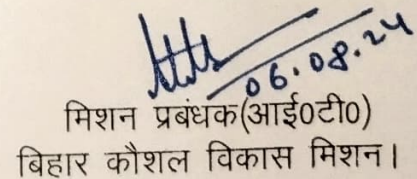 06.08.24
मिशन प्रबंधक(आई0टी0)
बिहार कौशल विकास मिशन।